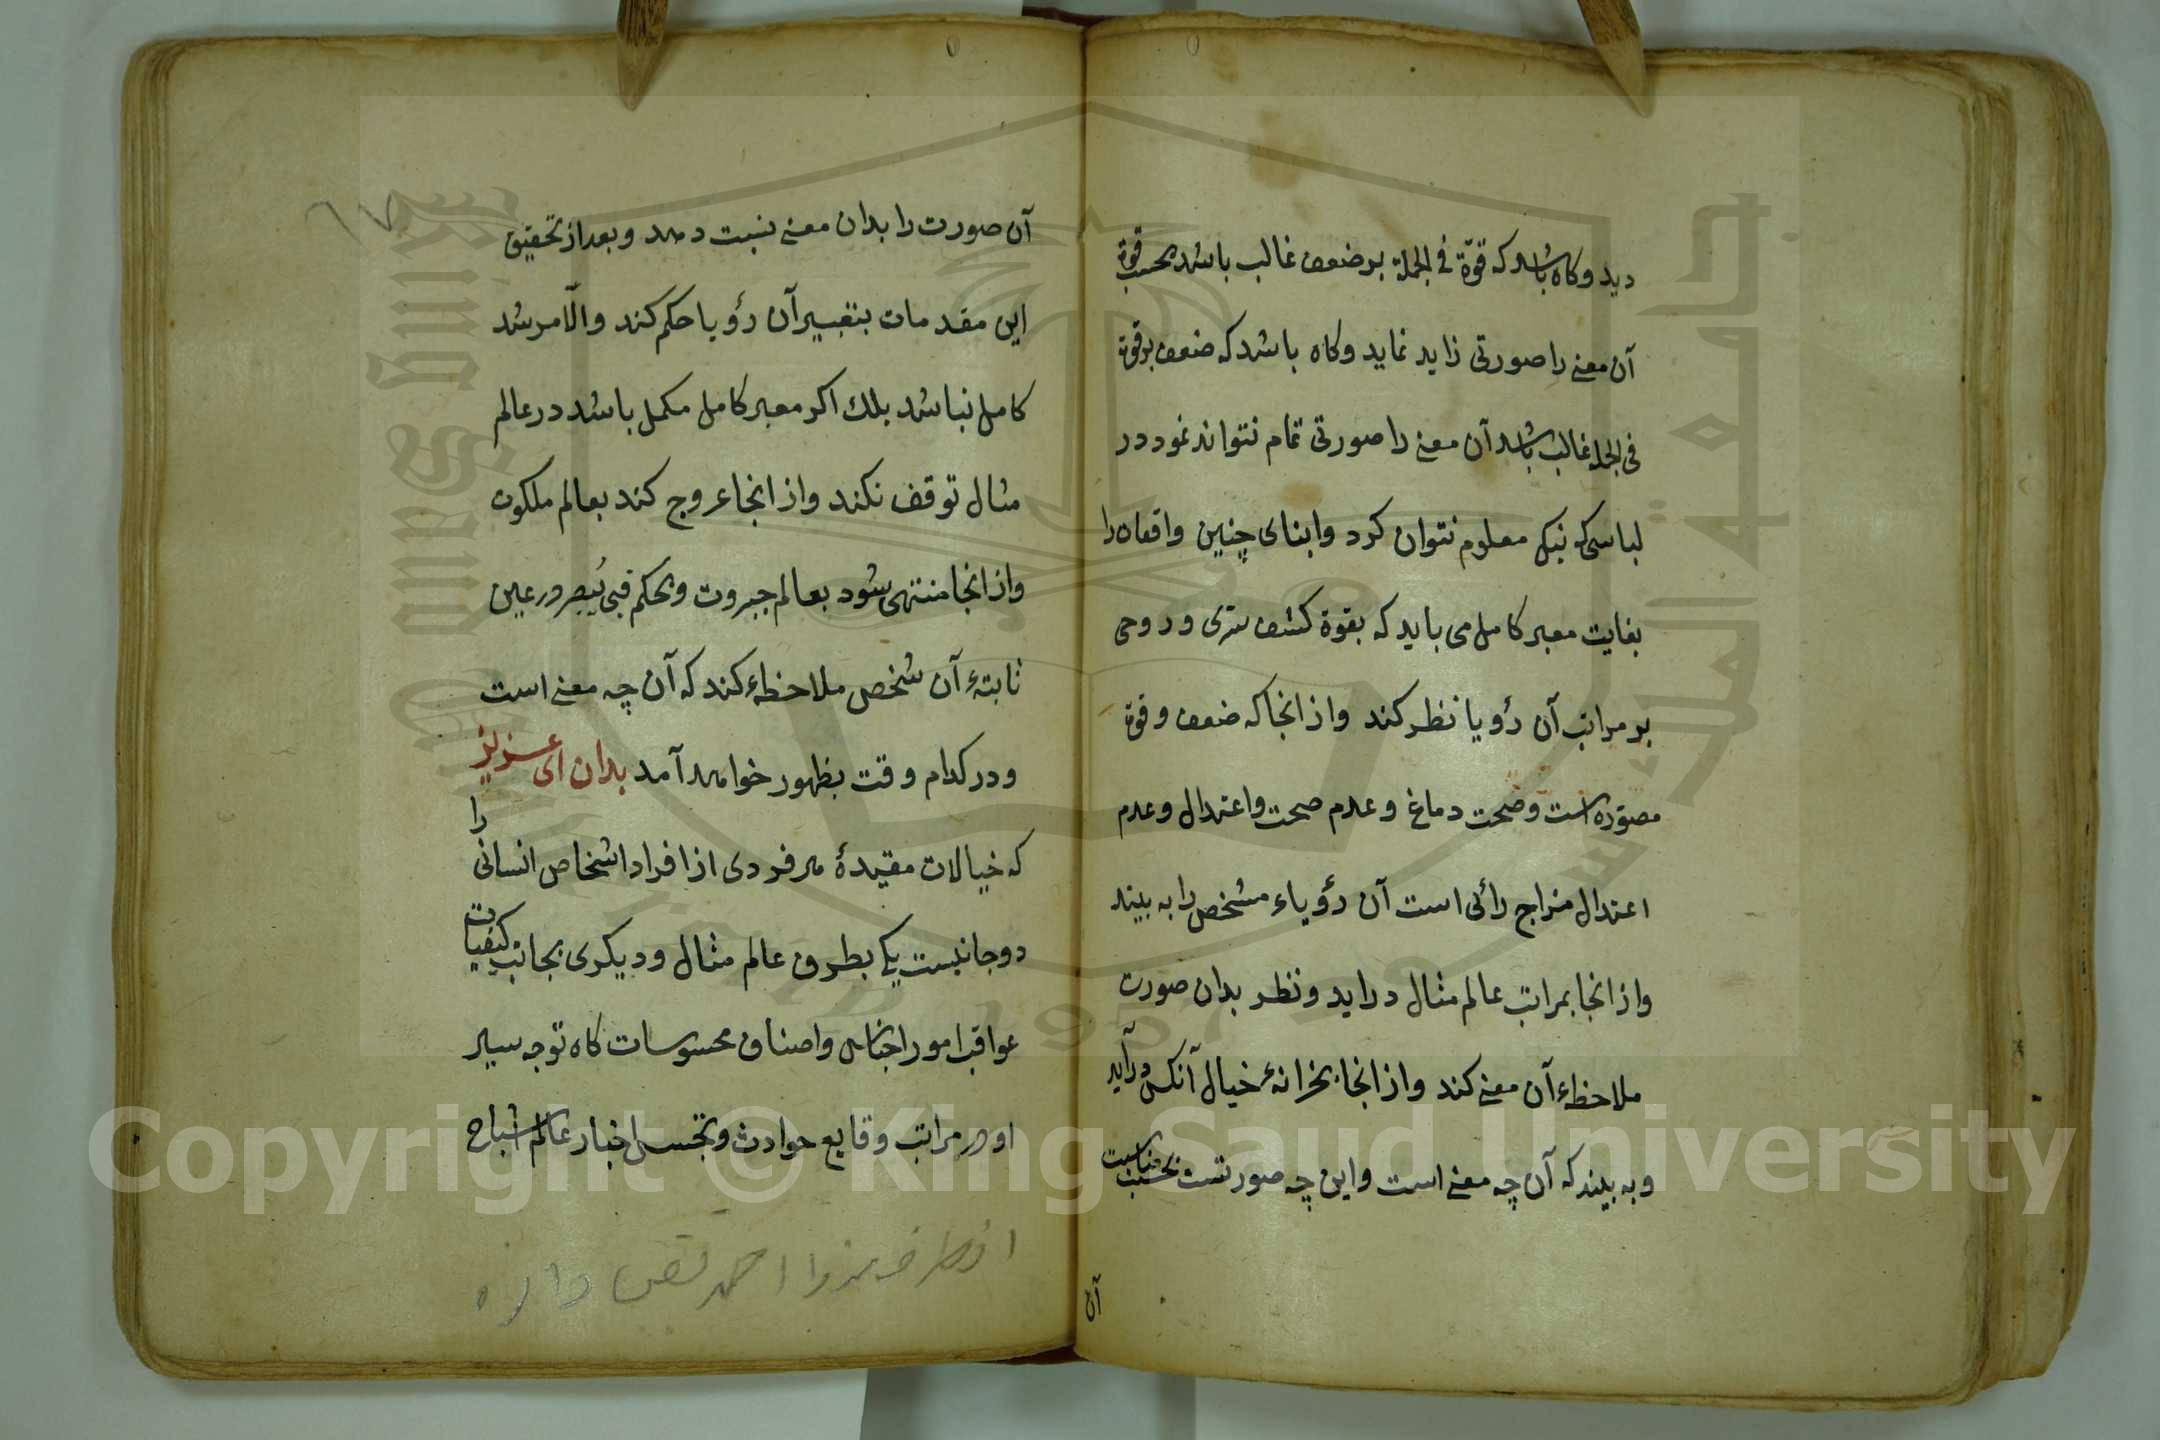 دید و کاه باشد که قوّة فی الجملة بر ضعف غالب باشد بحسب قوة
آن معنے را صورتی زاید نماید و کاه باشد که ضعف بر قوة
فی الجملة غالب باشد آن معنے را صورتی تمام نتواند نمود در
لباسی که نیک معلوم نتوان کرد و ابنای چنین واقعاه را
بغایت معبر کامل می باید که بقوة کشف سری و روحی
بر مراتب آن رؤیا نظر کند و از انجا که ضعف و قوة
مصوّره است و صحت دماغ و عدم صحت و اعتدال و عدم
اعتدال مزاج رائی است آن رؤیاء مشخص را به بیند
و از انجا بمراتب عالم مثال در اید و نظر بدان صورت
ملاحظهٔ آن معنے کند و از انجا بخزانهٔ خیال آنکس در آید
و به بیند که آن چه معنے است و این چه صورتست بحسب مناسبت
آن
آن صورت را بدان معنے نسبت دهد و بعد از تحقیق
این مقدمات بتعبیر آن رؤیا حکم کند و الّا مرشد
کامل نباشد بلك اکر معبر کامل مکمل باشد در عالم
مثال توقف نکند و از انجا عروج کند بعالم ملکوت
و از انجا منتهی شود بعالم جبروت و بحکم فبی یُبصر در عین
ثابتهٔ آن شخص ملاحظهٔ کند که آن چه معنے است
و در کدام وقت بظهور خواهد آمد بدان ای عزیز
که خیالات مقیدهٔ هر فردی از افراد اشخاص انسانی را
دو جانبست یکی بطرف عالم مثال و دیکری بجانب کیفیات
عواقب امور اجناس و اصناف محسوسات کاه توجه سیر
او در مراتب وقایع حوادث و تجسس اخبار عالم اشباح
Copyright © King Saud University
جامعة الملك سعود
King Saud University
1957